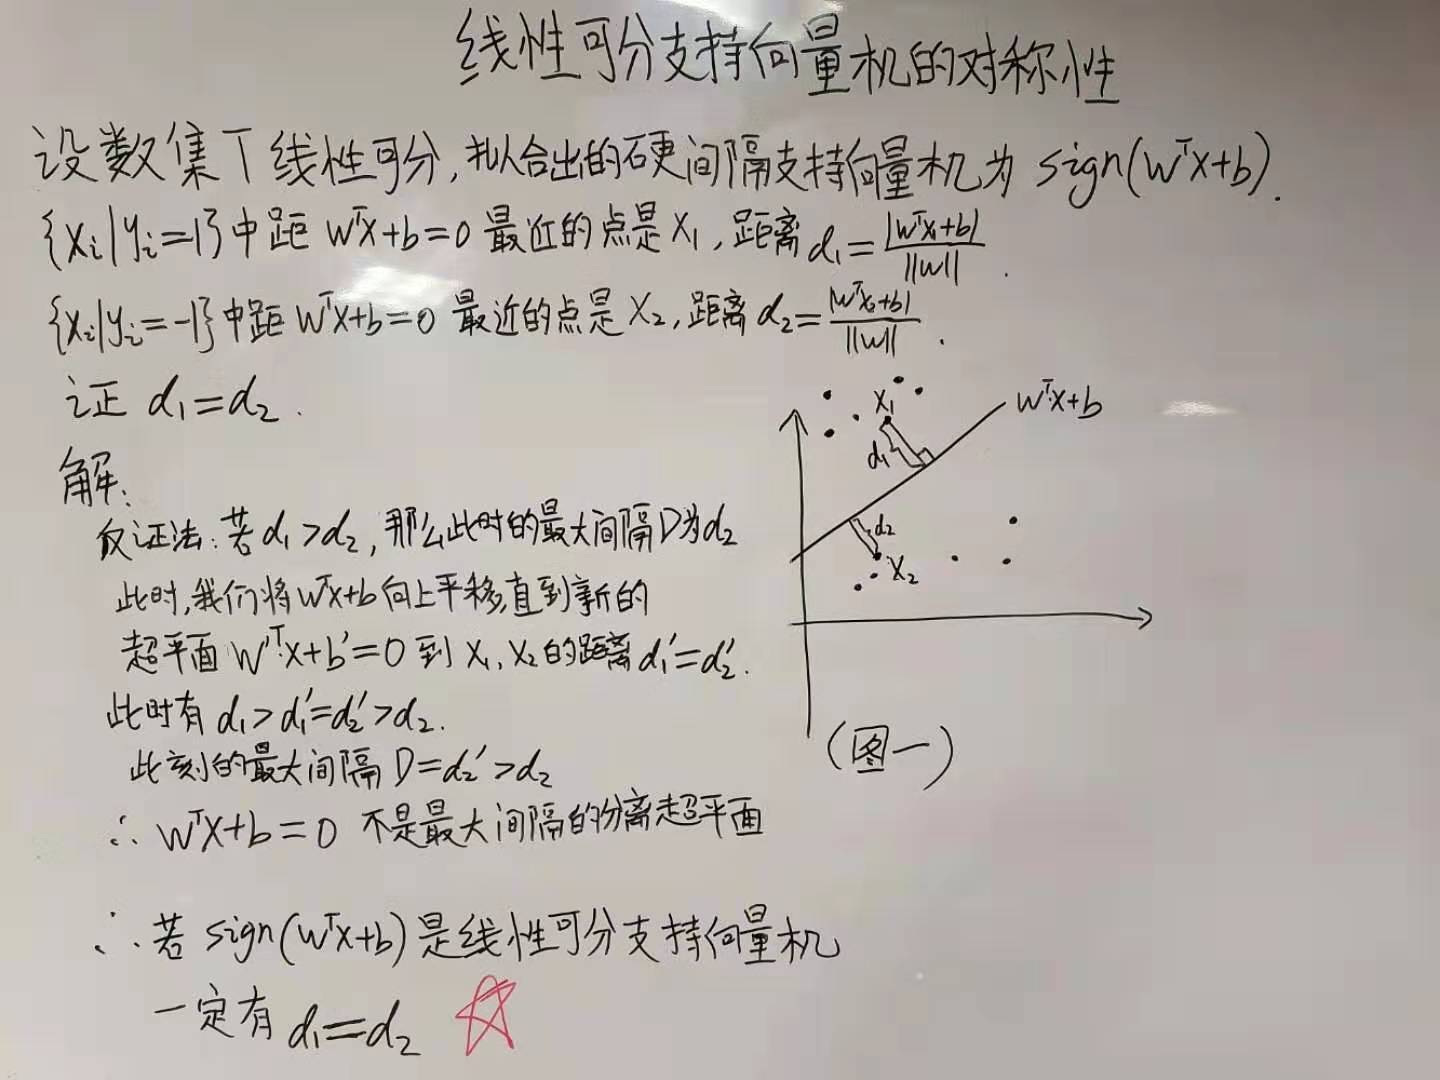 线性可分支持向量机的对称性
设数集T线性可分,拟合出的硬间隔支持向量机为 sign(wᵀx+b).
{xᵢ|yᵢ=1}中距 wᵀx+b=0 最近的点是 x₁, 距离 d₁=|wᵀx₁+b|/||w||.
{xᵢ|yᵢ=-1}中距 wᵀx+b=0 最近的点是 x₂, 距离 d₂=|wᵀx₂+b|/||w||.
证 d₁=d₂.
解:
反证法:若d₁>d₂,那么此时的最大间隔D为d₂
此时,我们将wᵀx+b向上平移,直到新的
超平面 w'ᵀx+b'=0 到 x₁,x₂的距离d₁'=d₂'.
此时有 d₁>d₁'=d₂'>d₂.
此刻的最大间隔 D=d₂'>d₂
∴ wᵀx+b=0 不是最大间隔的分离超平面
∴ 若 sign(wᵀx+b)是线性可分支持向量机
一定有 d₁=d₂
wᵀx+b
x₁
d₁
d₂
x₂
(图一)